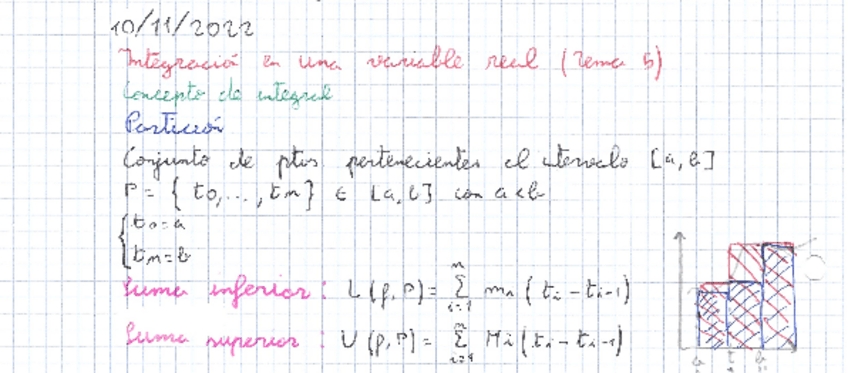 10/11/2022
Integración en una variable real (Tema 5)
Concepto de integral
Partición
Conjunto de ptos pertenecientes al intervalo [a, b]
P = { t0, ..., tn } ∈ [a, b] con a < b
{ t0 = a
tn = b
Suma inferior : L(f, P) = Σ_{i=1}^{n} mi (ti - ti-1)
Suma superior : U(f, P) = Σ_{i=1}^{n} Mi (ti - ti-1)
a t b